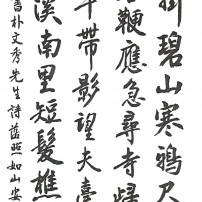 掛碧山寒鴉尺
鞭應急尋寺歸
帶影望夫臺
溪南里短髮樵
書朴文秀先生詩舊照如山安